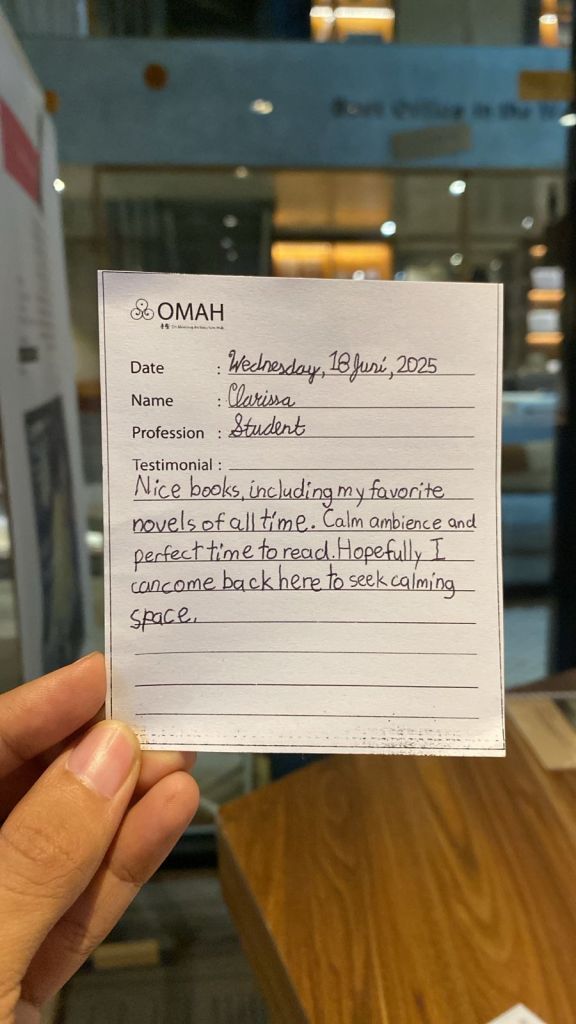 OMAH
Date : Wednesday, 18 Juni, 2025
Name : Clarissa
Profession : Student
Testimonial :
Nice books, including my favorite
novels of all time. Calm ambience and
perfect time to read. Hopefully I
can come back here to seek calming
space.